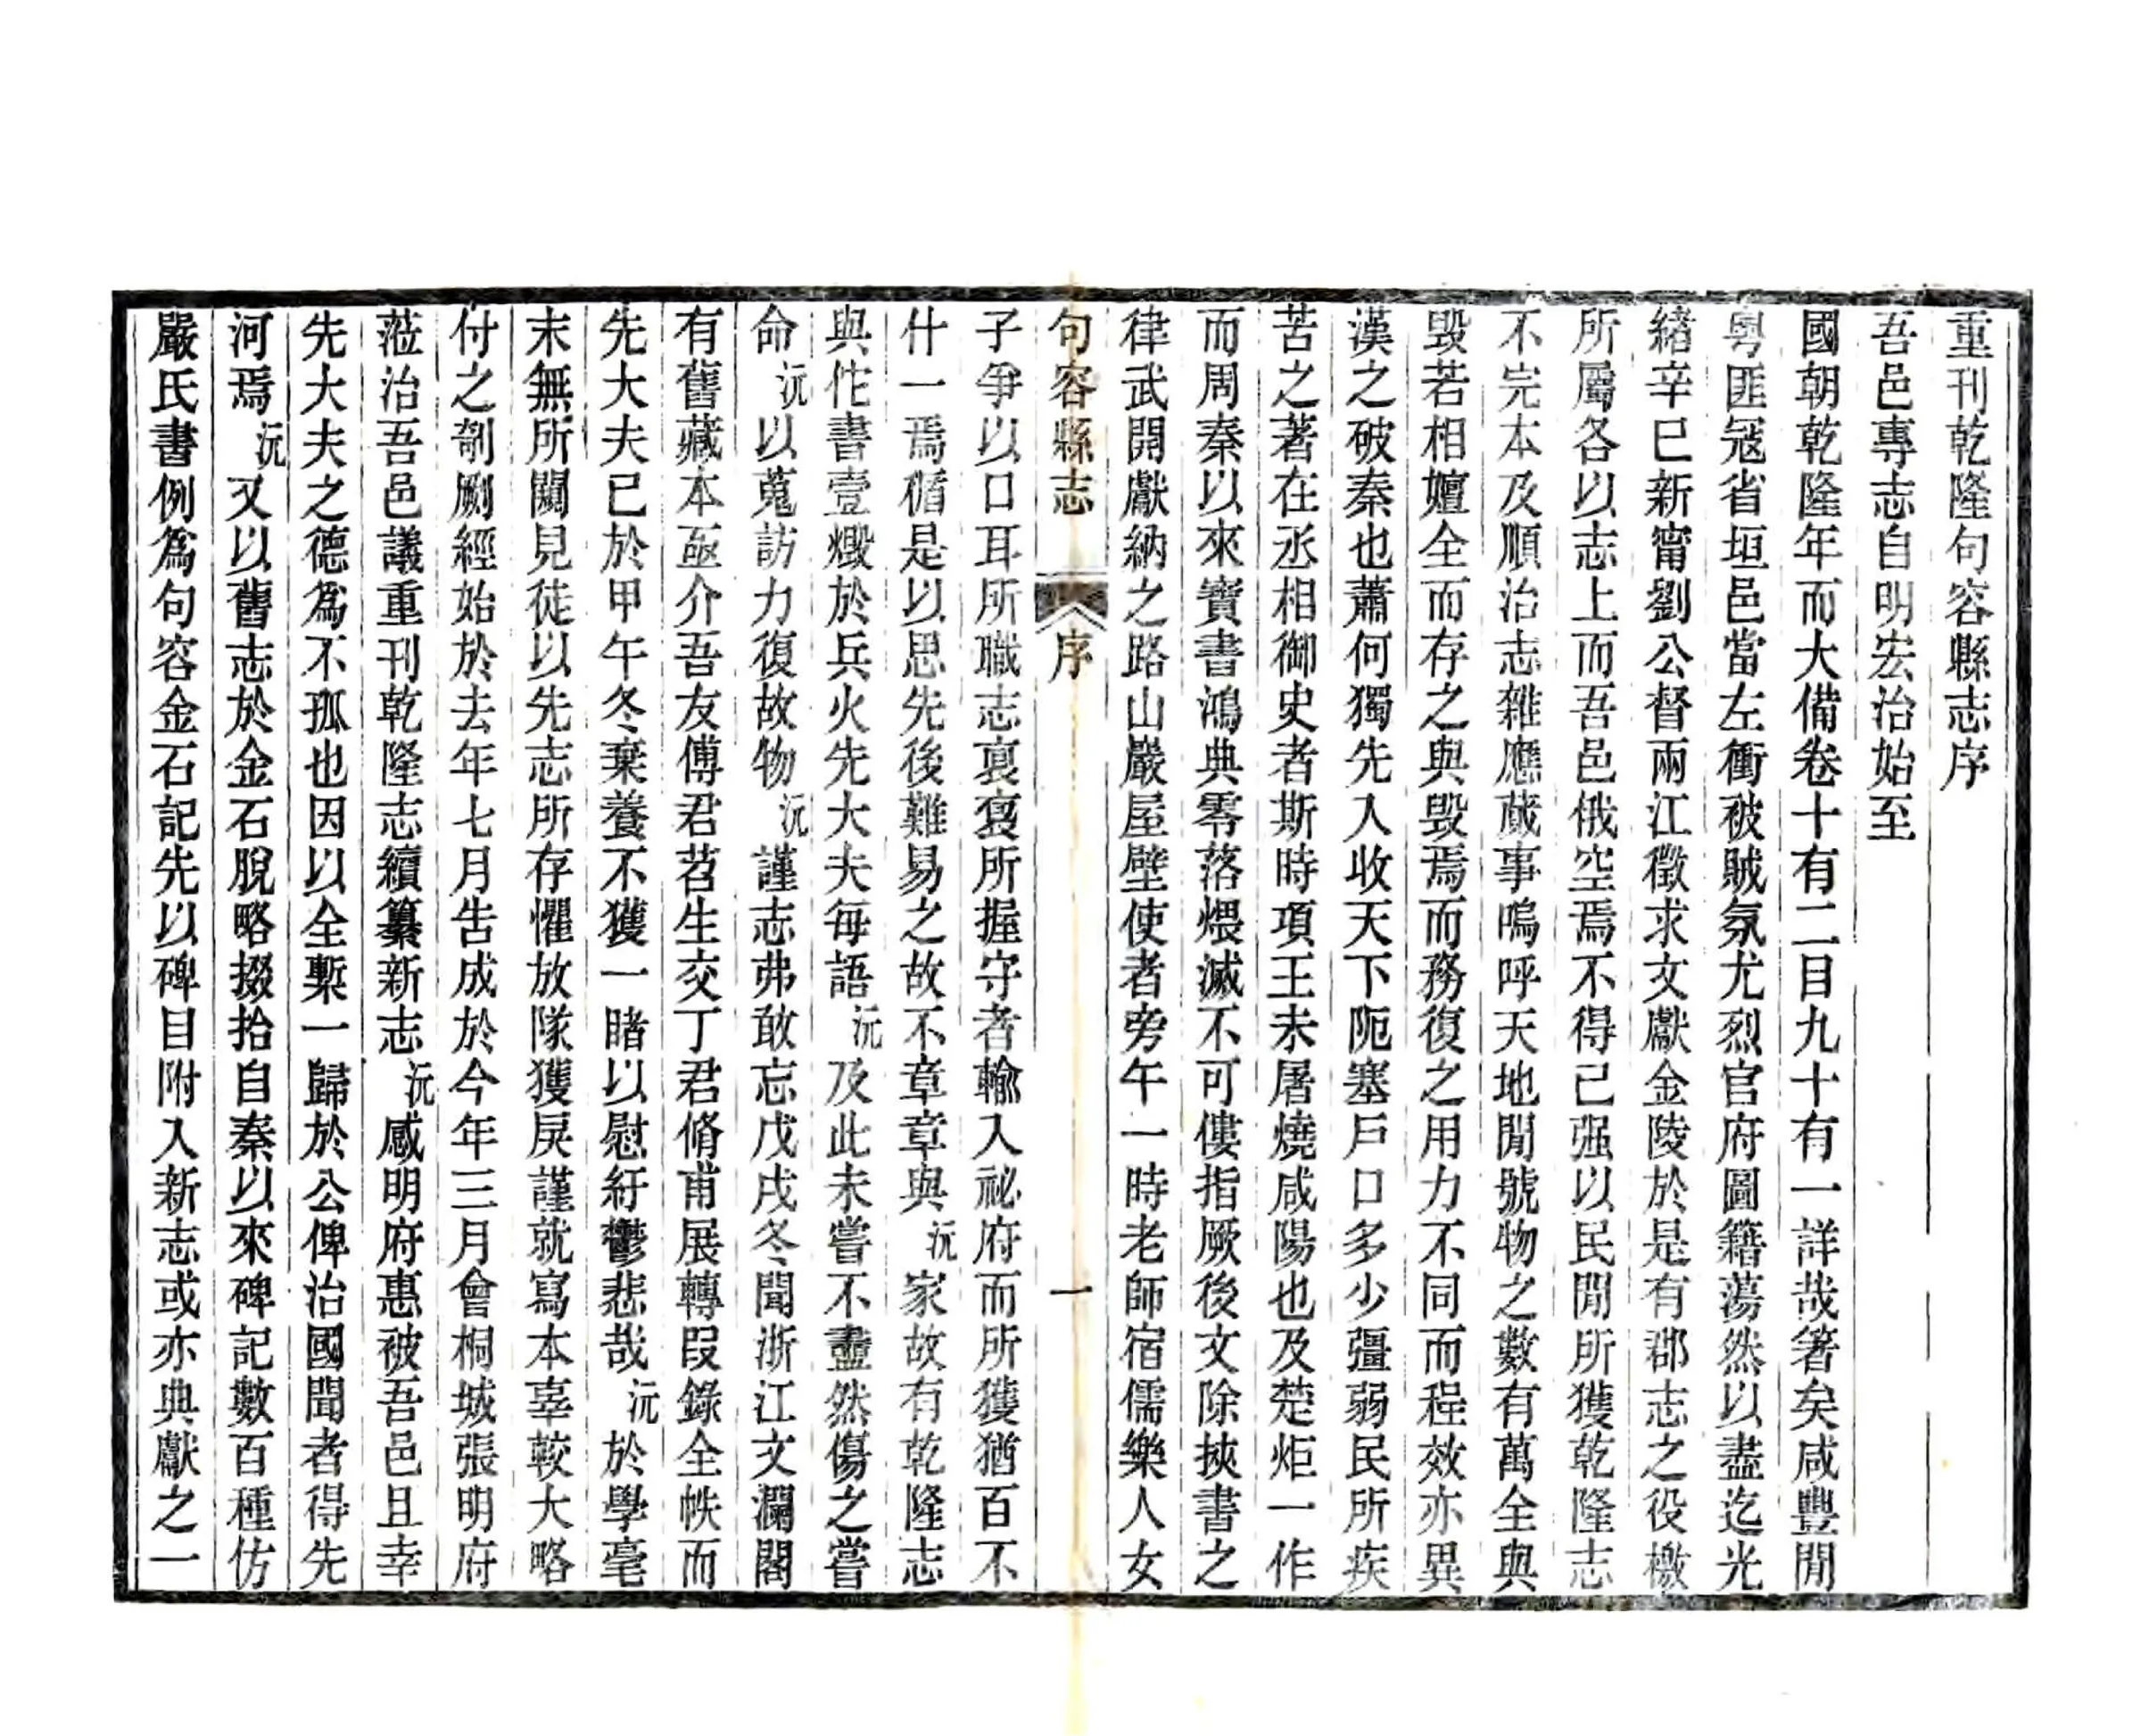 重刊乾隆句容縣志序
吾邑專志自明宏治始至
國朝乾隆年而大備卷十有二目九十有一詳哉箸矣咸豐閒
粵匪冦省垣邑當左衝被賊氛尤烈官府圖籍蕩然以盡迄光
緒辛巳新甯劉公督兩江徵求文獻金陵於是有郡志之役檄
所屬各以志上而吾邑俄空焉不得已强以民閒所獲乾隆志
不完本及順治志雜應蕆事嗚呼天地閒號物之數有萬全與
毀若相嬗全而存之與毀焉而務復之用力不同而程效亦異
漢之破秦也蕭何獨先入收天下阨塞戶口多少彊弱民所疾
苦之著在丞相御史者斯時項王未屠燒咸陽也及楚炬一作
而周秦以來寶書鴻典零落煨滅不可僂指厥後文除挾書之
律武開獻納之路山巖屋壁使者旁午一時老師宿儒樂人女
句容縣志 序 一
子爭以口耳所職志裒裒所握守者輸入祕府而所獲猶百不
什一焉循是以思先後難易之故不章章與沅家故有乾隆志
與佗書壹燬於兵火先大夫每語沅及此未嘗不盡然傷之嘗
命沅以蒐訪力復故物沅謹志弗敢忘戊戌冬聞浙江文瀾閣
有舊藏本亟介吾友傅君苕生交丁君脩甫展轉叚錄全帙而
先大夫已於甲午冬棄養不獲一睹以慰紆鬱悲哉沅於學毫
末無所闚見徒以先志所存懼放隊獲戾謹就寫本辜較大略
付之剞劂經始於去年七月告成於今年三月會桐城張明府
蒞治吾邑議重刊乾隆志續纂新志沅感明府惠被吾邑且幸
先大夫之德為不孤也因以全槧一歸於公俾治國聞者得先
河焉沅又以舊志於金石脫略掇拾自秦以來碑記數百種仿
嚴氏書例爲句容金石記先以碑目附入新志或亦典獻之一